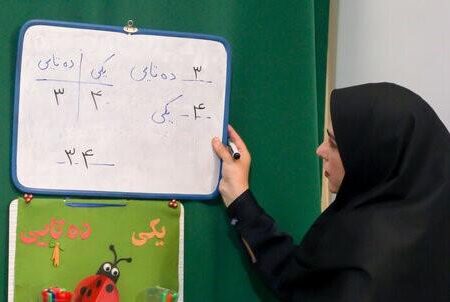 ۳ ده تایی
۴ یکی
یکی ده تایی
۴ ۳
۳۴
یکی ده تایی